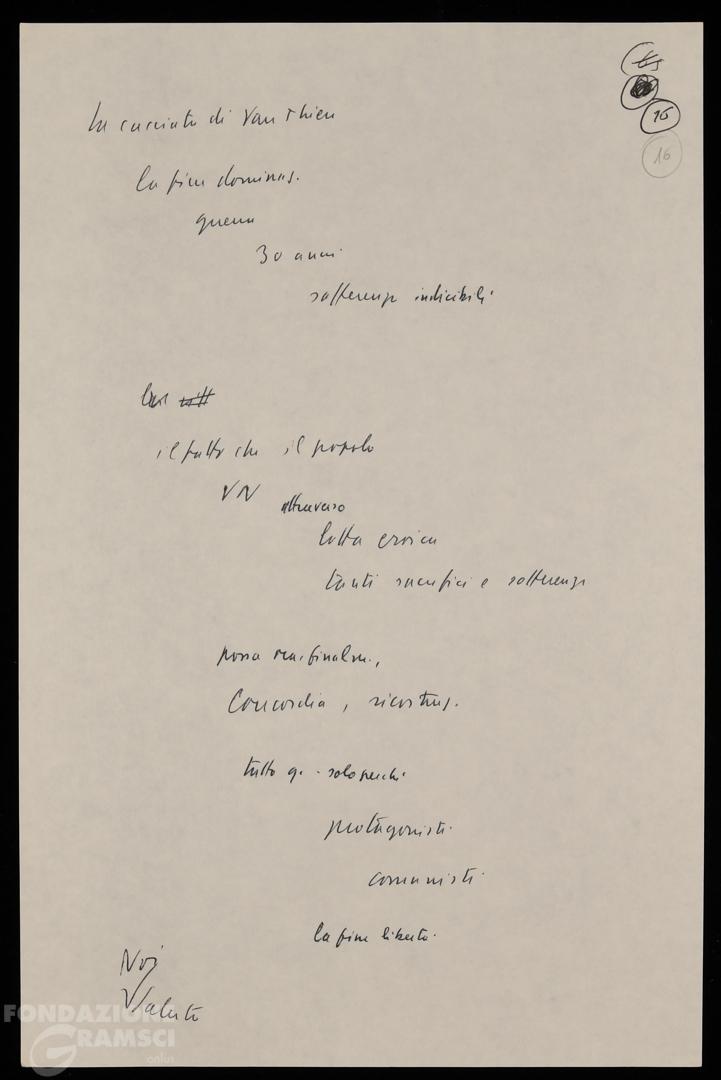 16
16
La cacciata di Van Thieu
la fine dominaz.
guerra
30 anni
sofferenze indicibili
il fatto che il popolo
VN attraverso
lotta eroica
tanti sacrifici e sofferenze
possa ora, finalm.,
Concordia, ricostruz.
tutto q. solo perché
protagonisti
comunisti
la fine libertà
Noi
Valuto
FONDAZIONE
GRAMSCI
onlus